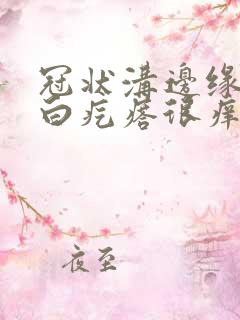 冠状溝邊缘
白疙瘩很痒
夜至